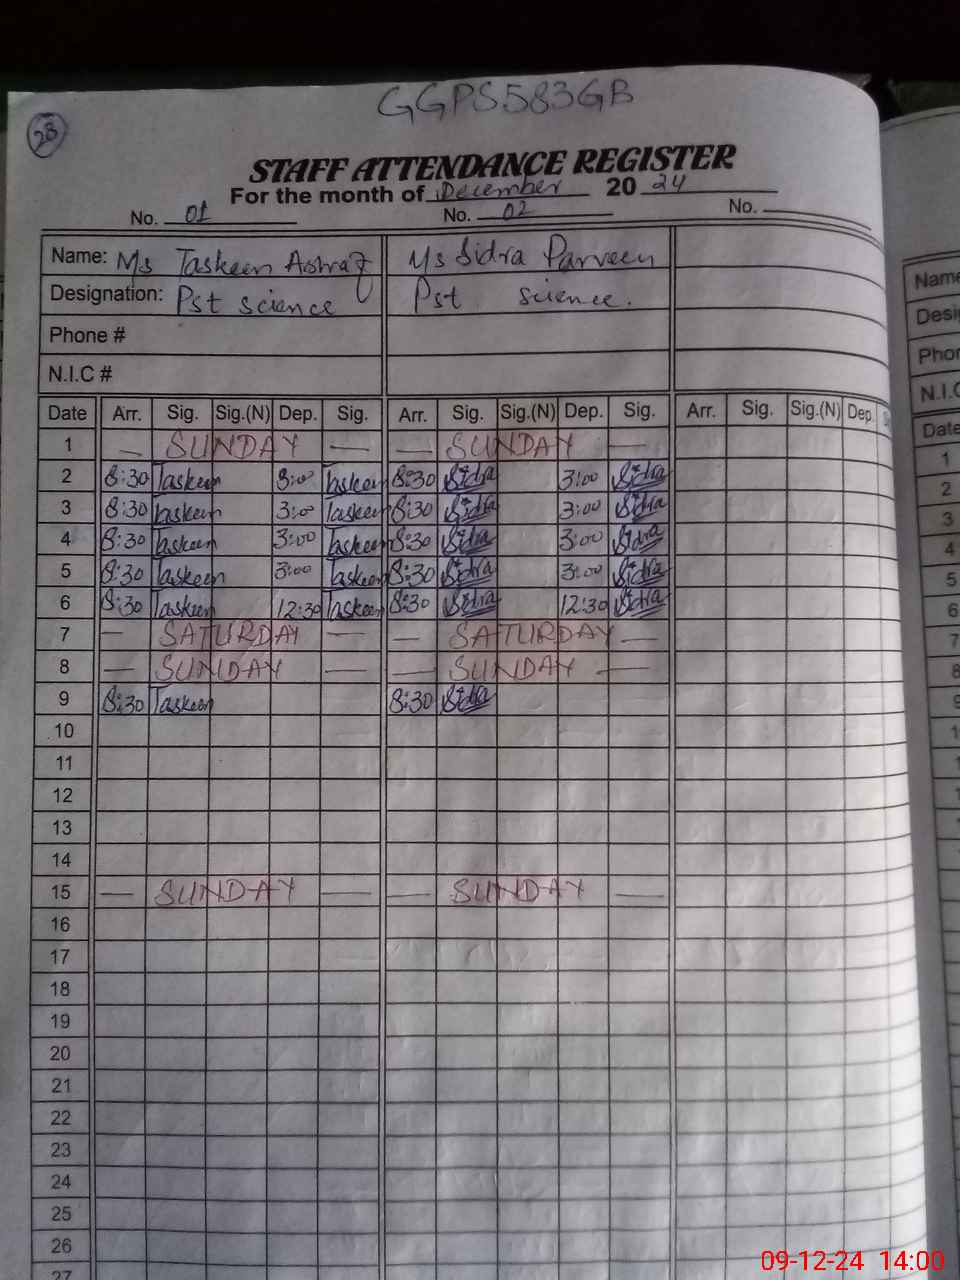 GGPS583GB
28
STAFF ATTENDANCE REGISTER
For the month of December 20 24
No. 01 No. 02 No.
Name: Ms Taskeen Ashraf Ms Sidra Parveen
Designation: Pst science Pst science.
Phone #
N.I.C #
Date Arr. Sig. Sig.(N) Dep. Sig. Arr. Sig. Sig.(N) Dep. Sig. Arr. Sig. Sig.(N) Dep.
1 — SUNDAY — — SUNDAY —
2 8:30 Taskeen 3:00 Taskeen 8:30 Sidra 3:00 Sidra
3 8:30 Taskeen 3:00 Taskeen 8:30 Sidra 3:00 Sidra
4 8:30 Taskeen 3:00 Taskeen 8:30 Sidra 3:00 Sidra
5 8:30 Taskeen 3:00 Taskeen 8:30 Sidra 3:00 Sidra
6 8:30 Taskeen 12:30 Taskeen 8:30 Sidra 12:30 Sidra
7 — SATURDAY — — SATURDAY —
8 — SUNDAY — — SUNDAY —
9 8:30 Taskeen 8:30 Sidra
10
11
12
13
14
15 — SUNDAY — — SUNDAY —
16
17
18
19
20
21
22
23
24
25
26
27
Name
Date
1
2
3
4
5
6
7
8
09-12-24 14:00